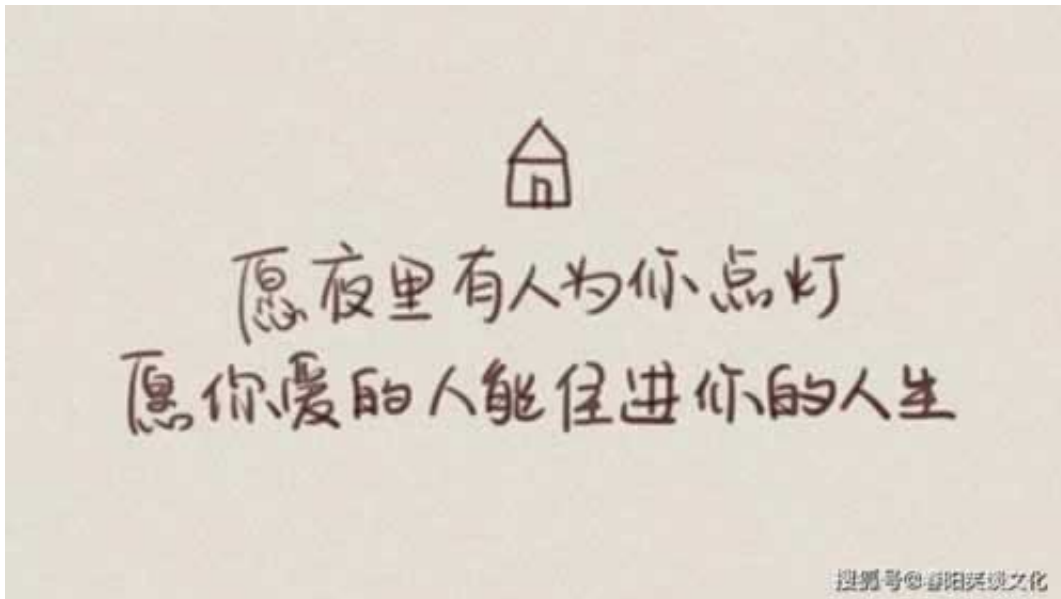 愿夜里有人为你点灯
愿你爱的人能住进你的人生
搜狐号@春阳笑谈文化